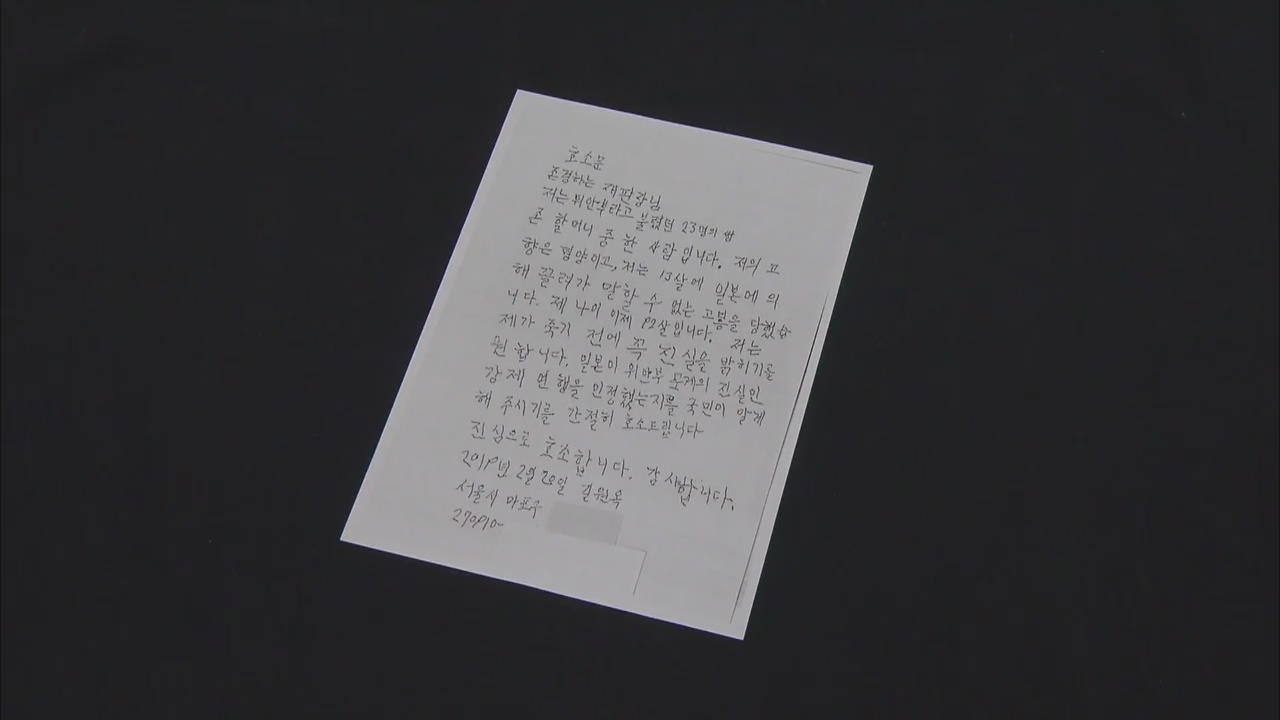 호소문
존경하는 재판장님
저는 위안부라고 불렸던 23명의 생
존 할머니 중 한 사람입니다. 저의 고
향은 평양이고, 저는 13살에 일본에 의
해 끌려가 말할 수 없는 고통을 당했습
니다. 제 나이 이제 92살입니다. 저는
제가 죽기 전에 꼭 진실을 밝히기를
원합니다. 일본이 위안부 문제의 진실인
강제 연행을 인정했는지를 국민이 알게
해 주시기를 간절히 호소드립니다
진심으로 호소합니다. 감사합니다.
2019년 2월 20일 길원옥
서울시 마포구
270910-